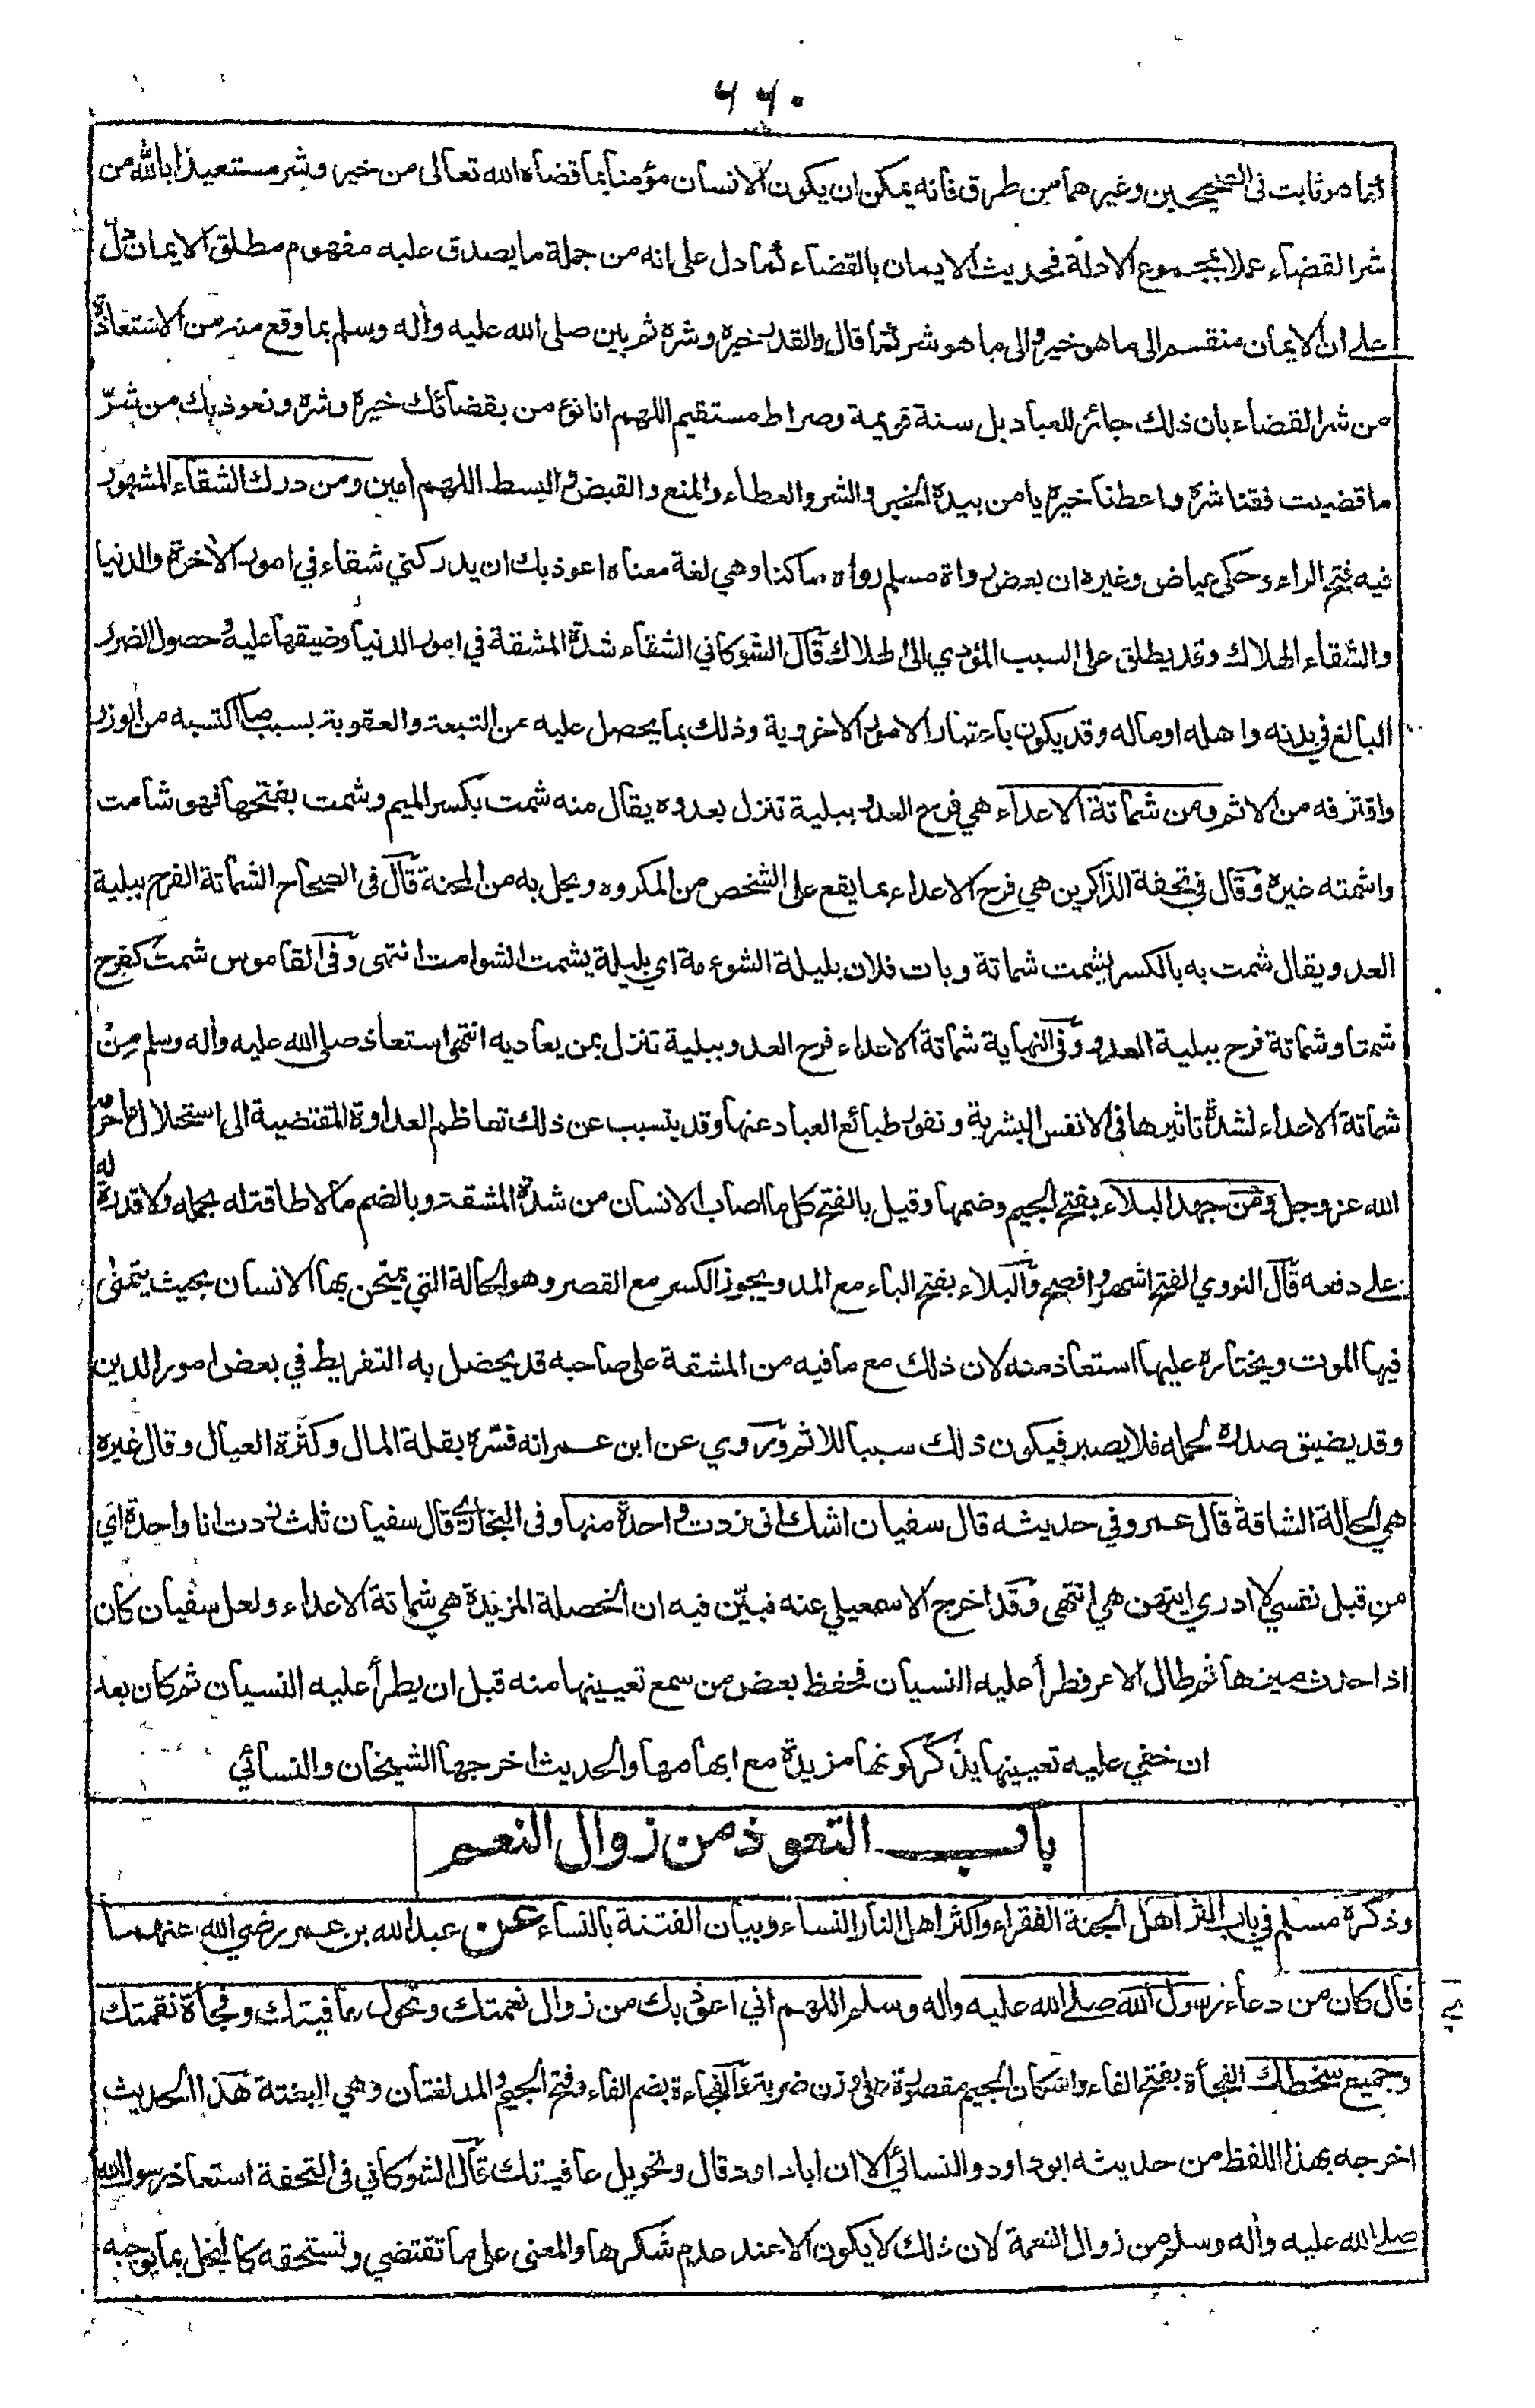 ٦٦٠
كما هو ثابت فى الصحيحين وغيرهما من طرق فانه يمكن ان يكون الانسان مؤمنا بما قضاه الله تعالى من خير وشر مستعيذا بالله من
شر القضاء عملا بمجموع الادلة فحديث الايمان بالقضاء كما دل على انه من جملة ما يصدق عليه مفهوم مطلق الايمان دل
على ان الايمان منقسم الى ما هو خير والى ما هو شر كما قال والقدر خيره وشره ثم بين صلى الله عليه وأله وسلم بما وقع منه من الاستعاذة
من شر القضاء بان ذلك جائز للعباد بل سنة قويمة وصراط مستقيم اللهم انا نؤمن بقضائك خيره وشره ونعوذ بك من شرّ
ما قضيت فقنا شره واعطنا خيره يا من بيده الخير والشر والعطاء والمنع والقبض والبسط اللهم أمين ومن درك الشقاء المشهور
فيه فتح الراء وحكى عياض وغيره ان بعض رواة مسلم رواه ساكنا وهي لغة معناه اعوذ بك ان يدركني شقاء في امور الأخرة والدنيا
والشقاء الهلاك وقد يطلق على السبب المؤدي الى الهلاك قال الشوكاني الشقاء شدة المشقة في امور الدنيا وضيقها عليه وحصول الضرر
البالغ في بدنه واهله او ماله وقد يكون باعتبار الامور الاخروية وذلك بما يحصل عليه من التبعة والعقوبة بسبب ما اكتسبه من الوزر
واقترفه من الاثم ومن شماتة الاعداء هي فرح العدو ببلية تنزل بعدوه يقال منه شمت بكسر الميم وشمت بفتحها فهو شامت
واشمته غيره وقال في تحفة الذاكرين هي فرح الاعداء بما يقع على الشخص من المكروه ويحل به من المحنة قال فى الصحاح الشماتة الفرح ببلية
العدو ويقال شمت به بالكسر يشمت شماتة وبات فلان بليلة الشوامت اي بليلة يشمت الشوامت انتهى وفى القاموس شمت كفرح
شمتا وشماتة فرح ببلية العدو وفى النهاية شماتة الاعداء فرح العدو ببلية تنزل بمن يعاديه انتهى استعاذ صلى الله عليه وأله وسلم مِنْ
شماتة الاعداء لشدة تاثيرها فى الانفس البشرية ونفور طبائع العباد عنها وقد يتسبب عن ذلك تعاظم العداوة المقتضية الى استحلال ما حرم
الله عز وجل ومن جهد البلاء بفتح الجيم وضمها وقيل بالفتح كل ما اصاب الانسان من شدة المشقة وبالضم ما لا طاقة له بحمله ولا قدرة له
على دفعه قال النووي الفتح اشهر وافصح والبلاء بفتح الباء مع المد ويجوز الكسر مع القصر وهو الحالة التي يمتحن بها الانسان بحيث يتمنى
فيها الموت ويختاره عليها استعاذ منه لان ذلك مع ما فيه من المشقة على صاحبه قد يحصل به التفريط في بعض امور الدين
وقد يضيق صدره لحمله فلا يصبر فيكون ذلك سببا للاثم وروي عن ابن عمر انه فسّره بقلة المال وكثرة العيال وقال غيره
هي الحالة الشاقة قال عمرو في حديثه قال سفيان اشك انى زدت واحدة منها وفى البخاري قال سفيان ثلث زدت انا واحدة اي
من قبل نفسي لا ادري ايتهن هي انتهى وقد اخرج الاسمعيلي عنه فبيّن فيه ان الخصلة المزيدة هي شماتة الاعداء ولعل سفيان كان
اذا حدث ميزها ثم طال الامر فطرأ عليه النسيان فحفظ بعض من سمع تعيينها منه قبل ان يطرأ عليه النسيان ثم كان بعد
ان خفي عليه تعيينها يذكر كونها مزيدة مع ابهامها والحديث اخرجها الشيخان والنسائي
باب التعوذ من زوال النعم
وذكره مسلم في باب اكثر اهل الجنة الفقراء واكثر اهل النار النساء وبيان الفتنة بالنساء عن عبد الله بن عمر رضي الله عنهما
قال كان من دعاء رسول الله صلى الله عليه وأله وسلم اللهم اني اعوذ بك من زوال نعمتك وتحول عافيتك وفجأة نقمتك
وجميع سخطك الفجأة بفتح الفاء واسكان الجيم مقصورة على وزن ضربة والفجاءة بضم الفاء وفتح الجيم والمد لغتان وهي البغتة هذا الحديث
اخرجه بهذا اللفظ من حديثه ابو داود والنسائي الا ان ابا داود قال وتحويل عافيتك قال الشوكاني فى التحفة استعاذ رسول الله
صلى الله عليه وأله وسلم من زوال النعمة لان ذلك لا يكون الا عند عدم شكرها والمعنى على ما تقتضي وتستحقه كالبخل بما يوجبه